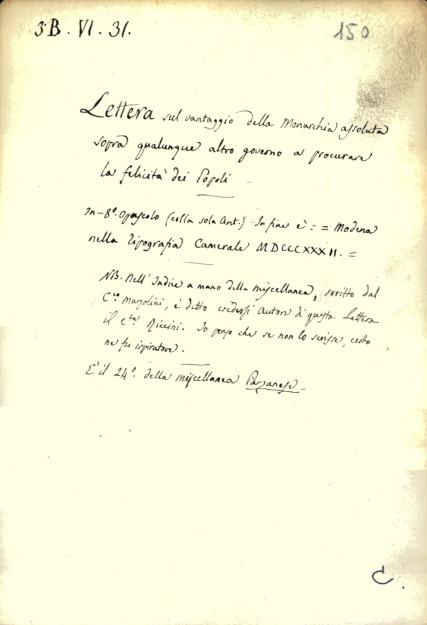 3B. VI. 31.
150
Lettera sul vantaggio della Monarchia assoluta
sopra qualunque altro governo a procurare
la felicità dei Popoli
In-8°. Opuscolo (colla sola Ant.) In fine è: = Modena
nella Tipografia Camerale MDCCCXXXII. =
NB. Nell'Indice a mano della miscellanea, scritto dal
è ditto credersi autore di questa Lettera
il Riccini. Io penso che se non lo scrisse, certo
ne fu ispiratore.
È il 24°. della miscellanea
C.